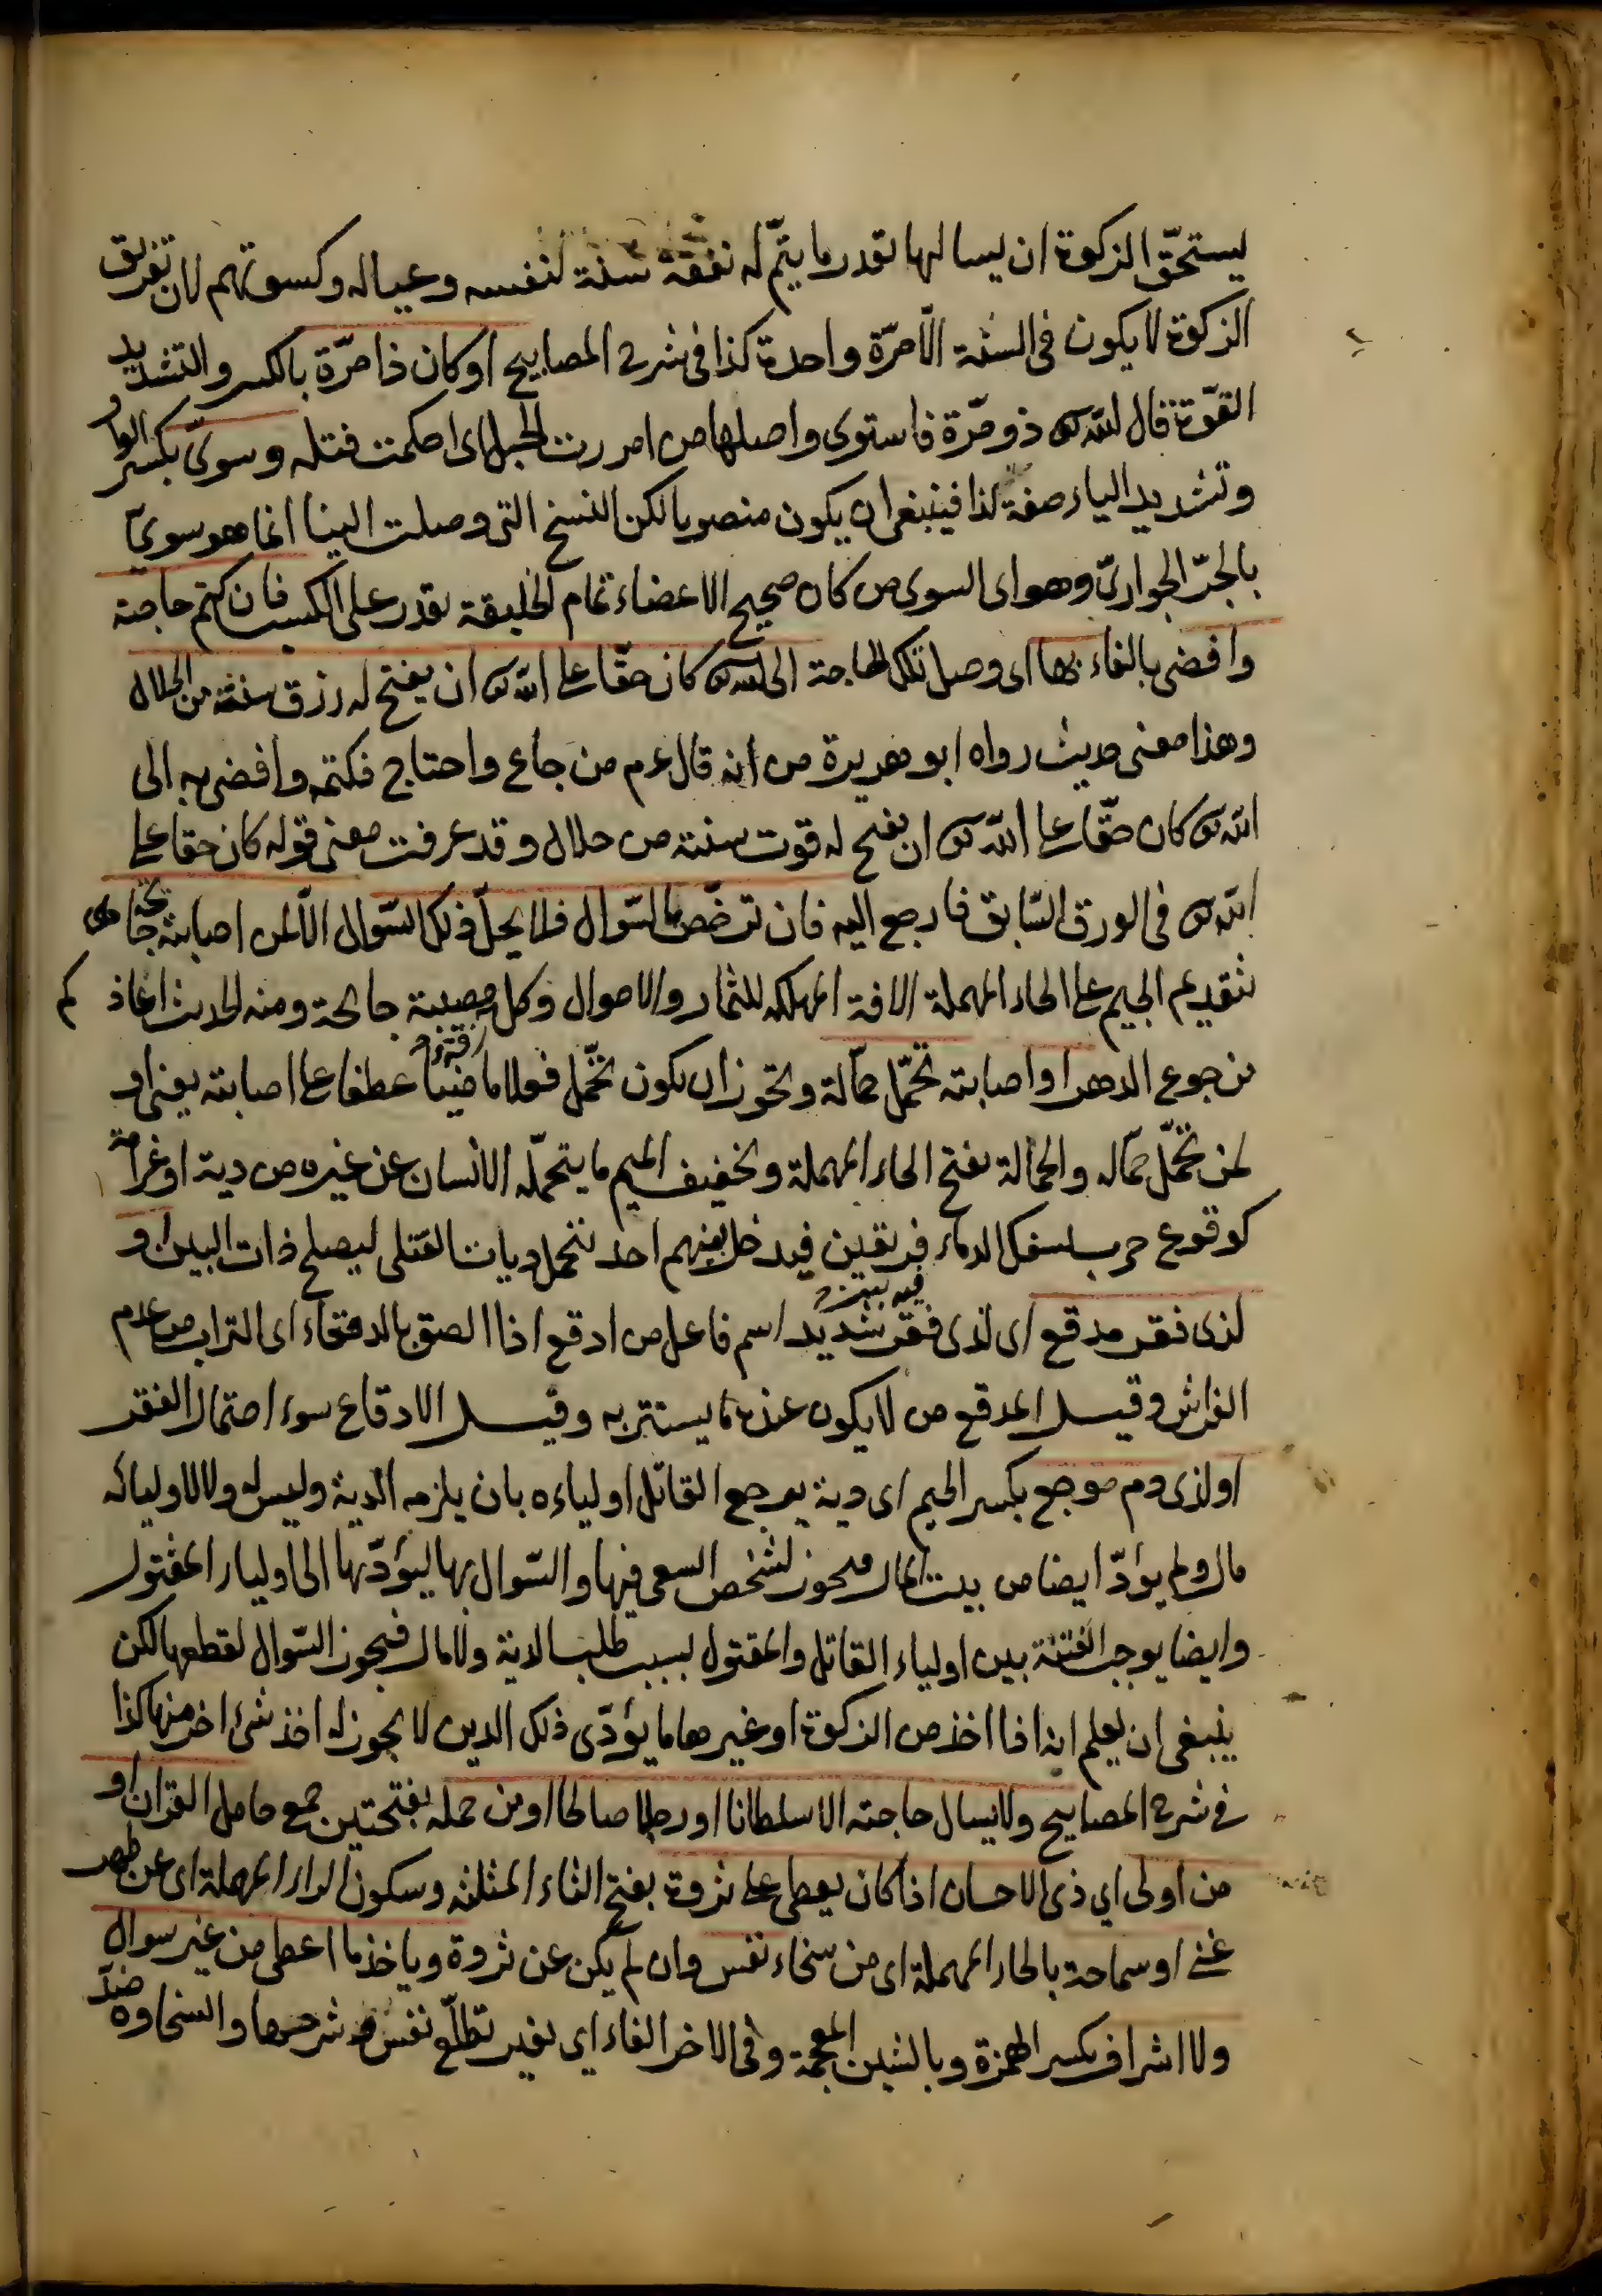 يستحقّ الزكوة ان يسالها بقدر ما يتمّ له نفقة سنة لنفسه وعياله وكسوتهم لان تفريق
الزكوة لا يكون فى السنة الّا مرّة واحدة كذا فى شرح المصابيح او كان ذا مرّة بالكسر والتشديد
القوّة قال الله تع ذو مرّة فاستوى واصلها من امررت الحبل اى احكمت فتله وسوىّ بكسر الواو
وتشديد الياء صفة لذا فينبغى ان يكون منصوبا لكن النسخ التى وصلت الينا انما هو سوىّ
بالجرّ الجوارىّ وهو اى السوى من كان صحيح الاعضاء تمام الخليقة يقدر على الكسب فان كتم حاجته
وافضى بالفاء بها اى وصل تلك الحاجة الى الله تع كان حقّا على الله تع ان يفتح له رزق سنة من الحلال
وهذا معنى حديث رواه ابو هريرة رض انه قال عم من جاع واحتاج فكتمه وافضى به الى
الله تع كان حقّا على الله تع ان يفتح له قوت سنة من حلال وقد عرفت معنى قوله كان حقا على
الله تع فى الورق السّابق فارجع اليه فان ترخّص بالسّوال فلا يحلّ ذلك السّوال الّا لمن اصابته جائحة هى
بتقديم الجيم على الحاء المهملة الافة المهلكه للثمار والاموال وكل مصيبة جائحة ومنه الحديث اعاذكم
من جوع الدهر او اصابته تحمّل حمالة ويجوز ان يكون تحمّل فعلا ماضيا عطفا على اصابته يعنى او
لمن تحمّل حمّاله والحمالة بفتح الحاء المهملة وتخفيف الميم ما يتحمّله الانسان عن غيره من دية او غرامة
كوقوع حرب لسفك الدماء فريقين فيدخل بينهم احد يتحمل ديات القتلى ليصلح ذات البين او
لذى فقر مدقع اى لذى فقر شديد اسم فاعل من ادقع اذا الصق بالدقعاء اى التراب من عدم
الفراش وقيل المدقع من لا يكون عنده ما يستتر به وقيل الادقاع سوء احتمال الفقر
او لذى دم موجع بكسر الجيم اى دية يوجع القاتل اولياءه بان يلزمه الدية وليس له ولا لاوليائه
مال ولم يؤدّ ايضا من بيت المال فيجوز لشخص السعى فيها والسّوال بها ليؤدّيها الى اولياء المقتول
وايضا يوجب الفتنة بين اولياء القاتل والمقتول بسبب طلب الدية ولا مال فيجوز السّوال لقطعها لكن
ينبغى ان يعلم انه اذا اخذ من الزكوة او غيرها ما يؤدّى ذلك الدين لا يجوز له اخذ شئ اخر منها كذا
فى شرح المصابيح ولا يسال حاجته الا سلطانا او رجلا صالحا او من حمله بفتحتين جمع حامل القران او
من اولى اي ذى الاحسان اذا كان يعطى على ثروة بفتح الثاء المثلثه وسكون الراء المهملة اى عن ظهر
غنى او سماحة بالحاء المهملة اى من سخاء نفس وان لم يكن عن ثروة وياخذ ما اعطى من غير سوال
ولا اشراف بكسر الهمزة وبالشين المعجمة وفى الاخر الفاء اي بغير تطلّع نفس وشرهها والسخاوة ضدّ